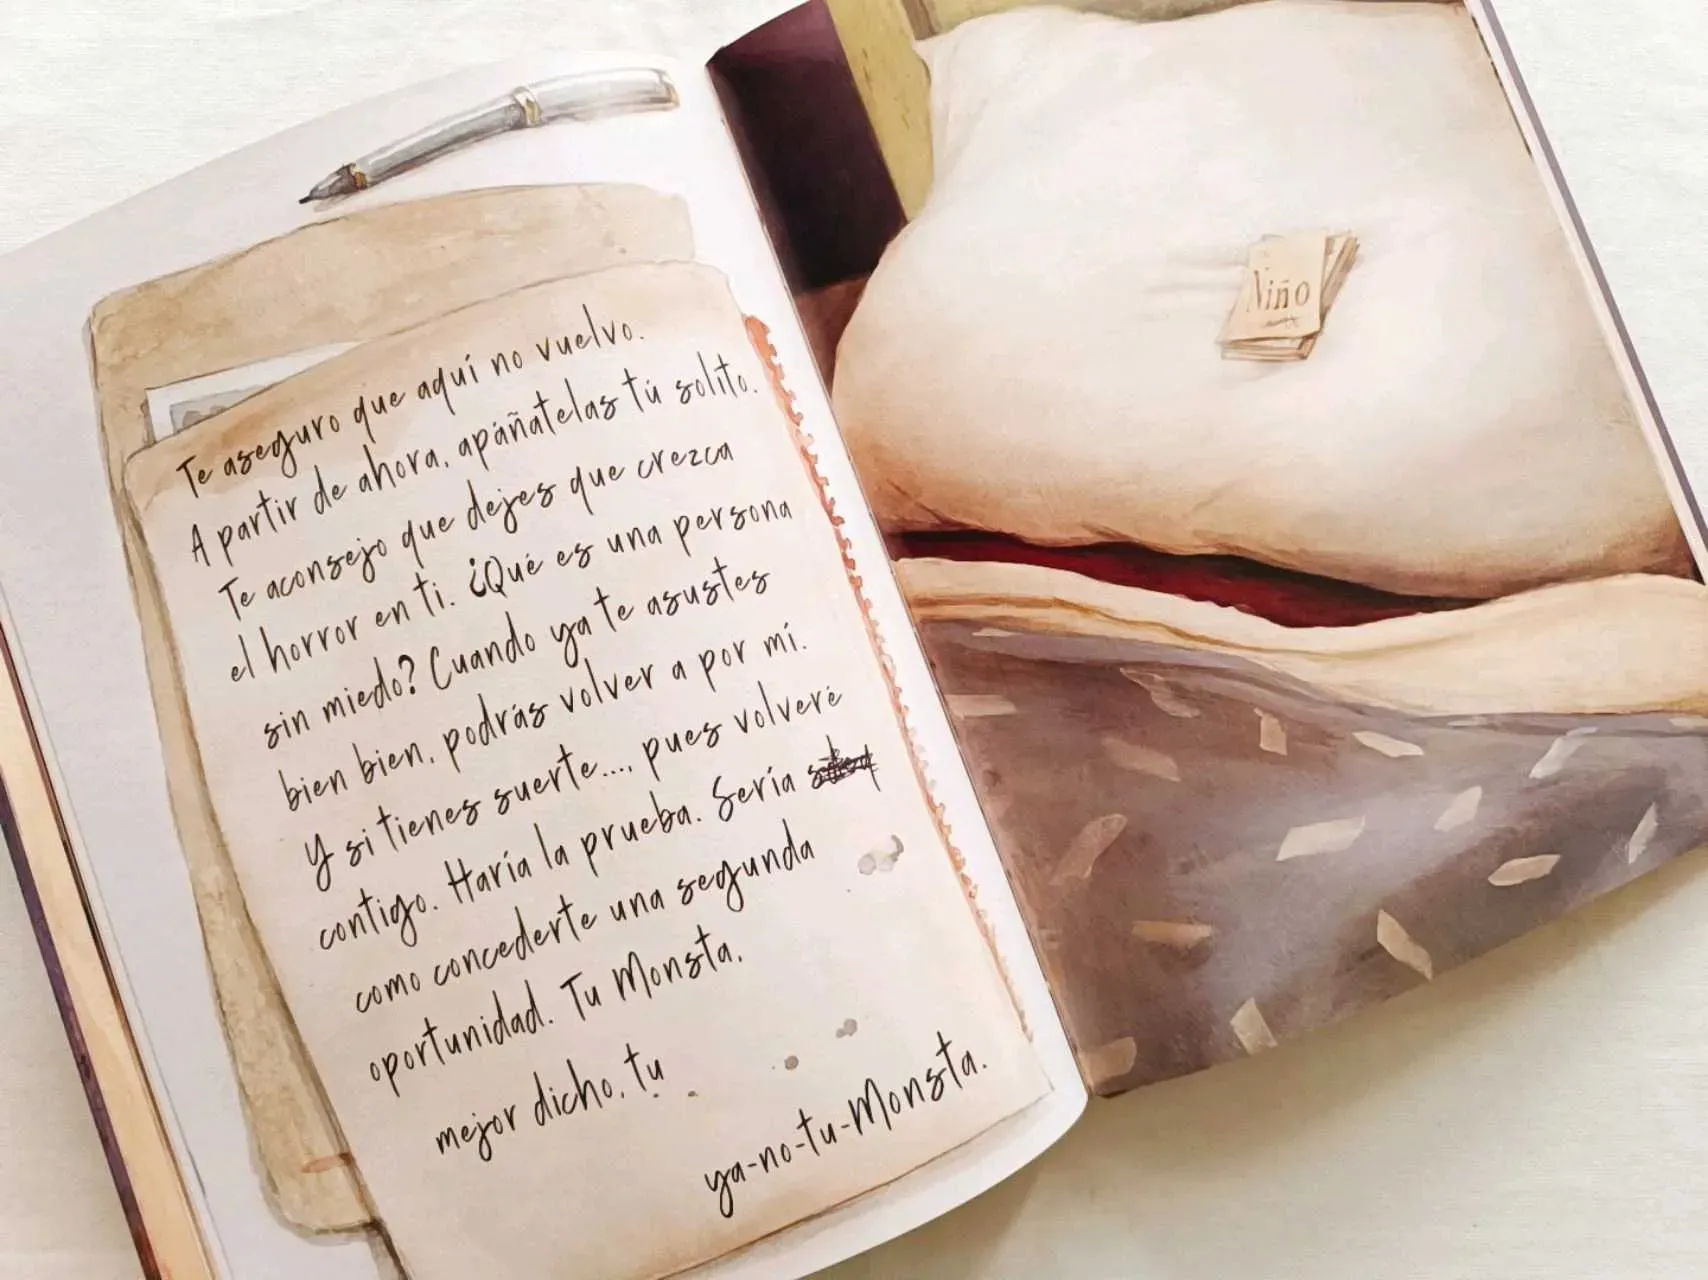 Te aseguro que aquí no vuelvo.
A partir de ahora, apáñatelas tú solito.
Te aconsejo que dejes que crezca
el horror en ti. ¿Qué es una persona
sin miedo? Cuando ya te asustes
bien bien, podrás volver a por mí.
Y si tienes suerte..., pues volveré
contigo. Haría la prueba. Sería
como concederte una segunda
oportunidad. Tu Monsta,
mejor dicho, tu
ya-no-tu-Monsta.
Niño